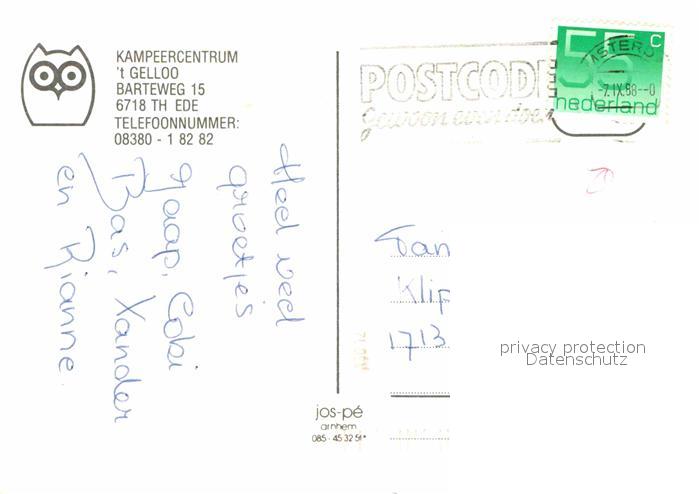 KAMPEERCENTRUM
't GELLOO
BARTEWEG 15
6718 TH EDE
TELEFOONNUMMER:
08380 - 1 82 82
Heel veel
groetjes
Jaap, Cobi
Bas, Xander
en Rianne
POSTCODE
gewoon even doen
55 c
nederland
-7.IX.88--0
Fam
Klip
1713
privacy protection
Datenschutz
jos-pé
arnhem
085 - 45 32 51*